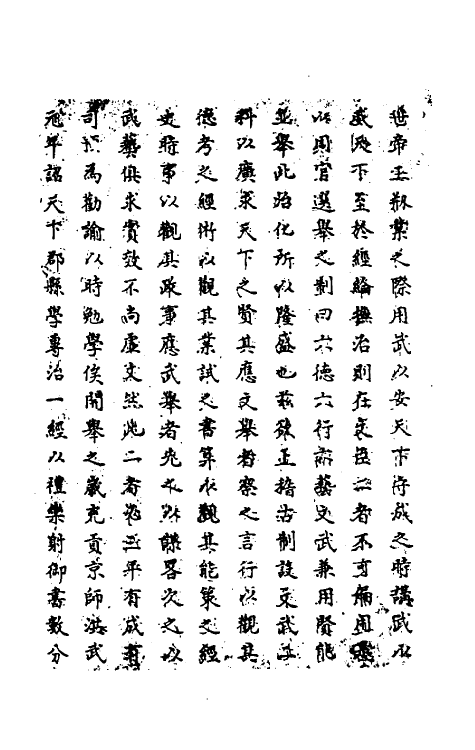 世帝王創業之際用武以安天下守成之時講武以
威天下至於經綸撫治則在文臣二者不可偏用
以周官選舉之制曰六德六行六藝文武兼用賢能
並舉此治化所以隆盛也茲欲上稽古制設文武二
科以廣求天下之賢其應文舉者察之言行以觀其
德考之經術以觀其業試之書算以觀其能策之經
史時事以觀其政事應武舉者先之以謀畧次之以
武藝俱求實效不尚虛文然此二者必三年有成有
司 為勸諭以時勉學俟開舉之歲充貢京師洪武
冠年詔天下郡縣學專治一經以禮樂射御書數分